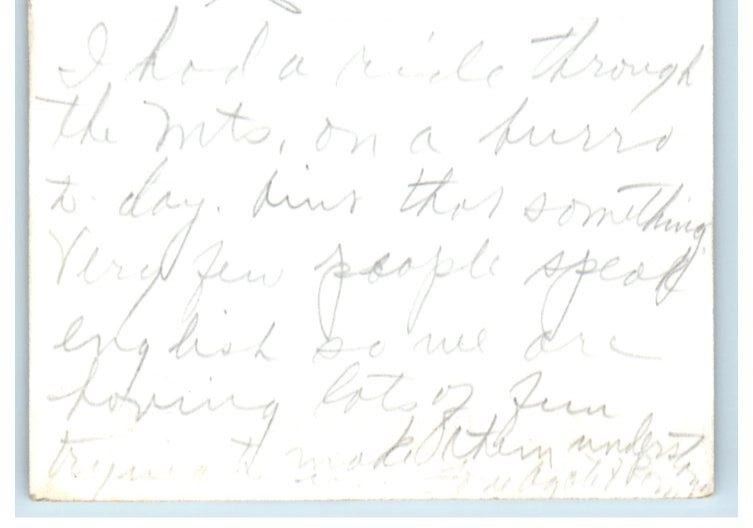 I had a ride through
the Mts. on a burro
to day. Aint that something.
Very few people speak
english so we are
having lots of fun
trying to make them underst